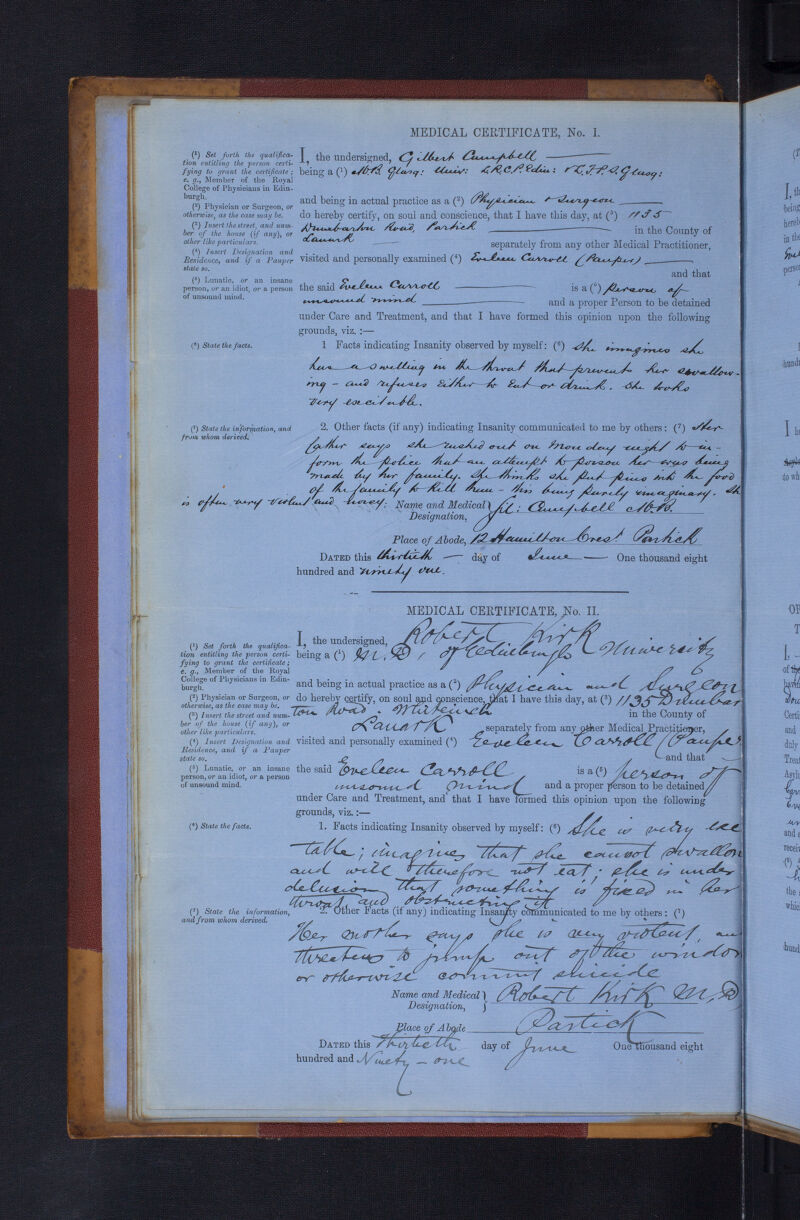 MEDICAL CERTIFICATE, No. I.
(¹) Set forth the qualifica-
tion entitling the person certi-
fying to grant the certificate;
e. g., Member of the Royal
College of Physicians in Edin-
burgh.
(²) Physician or Surgeon, or
otherwise, as the case may be.
(³) Insert the street, and num-
ber of the house (if any), or
other like particulars.
(⁴) Insert Designation and
Residence, and if a Pauper
state so.
(⁵) Lunatic, or an insane
person, or an idiot, or a person
of unsound mind.
I, the undersigned, Gilbert Campbell
being a (¹) M.B. Glasg: Univ: L.R.C.P. Edin: & L.F.P.S. Glasg:
and being in actual practice as a (²) Physician & Surgeon
do hereby certify, on soul and conscience, that I have this day, at (³) 1135
Dumbarton Road, Partick in the County of
Lanark separately from any other Medical Practitioner,
visited and personally examined (⁴) Eveleen Carroll (Pauper)
and that
the said Eveleen Carroll is a (⁵) person of
unsound mind and a proper Person to be detained
under Care and Treatment, and that I have formed this opinion upon the following
grounds, viz.:—
(⁶) State the facts.
1 Facts indicating Insanity observed by myself: (⁶) She imagines she
has a swelling in the throat that prevents her swallow-
ing - and refuses either to eat or drink. She looks
very excitable.
(⁷) State the information, and
from whom derived.
2. Other facts (if any) indicating Insanity communicated to me by others: (⁷) Her
father says she rushed out on Monday night to in-
form the police that an attempt to poison her was being
made by her family. She thinks she put pins into the food
of the family to kill them - this being purely imaginary. Sh
is often very violent and noisy.
Name and Medical Designation, Gil: Campbell M.B.
Place of Abode, 12 Hamilton Cres.t Partick
DATED this thirtieth day of June One thousand eight
hundred and ninety one.
MEDICAL CERTIFICATE, No. II.
(¹) Set forth the qualifica-
tion entitling the person certi-
fying to grant the certificate;
e. g., Member of the Royal
College of Physicians in Edin-
burgh.
(²) Physician or Surgeon, or
otherwise, as the case may be.
(³) Insert the street and num-
ber of the house (if any), or
other like particulars.
(⁴) Insert Designation and
Residence, and if a Pauper
state so.
(⁵) Lunatic, or an insane
person, or an idiot, or a person
of unsound mind.
I, the undersigned, Robert Kirk
being a (¹) M.D. of Edinburgh University
and being in actual practice as a (²) Physician and Surgeon
do hereby certify, on soul and conscience, that I have this day, at (³) 1135 Dumbar
ton Road in the County of
Lanark separately from any other Medical Practitioner,
visited and personally examined (⁴) Eeveleen Carroll (Paupe
and that
the said Eveleen Carroll is a (⁵) person of
unsound mind and a proper person to be detained
under Care and Treatment, and that I have formed this opinion upon the following
grounds, viz.:—
(⁶) State the facts.
1. Facts indicating Insanity observed by myself: (⁶) She is very exci
table; imagines that she cannot swallow
and will therefore not eat; she is under
delusion that something is fixed in her
throat and obstructing it
(⁷) State the information,
and from whom derived.
2. Other Facts (if any) indicating Insanity communicated to me by others: (⁷)
Her mother says she is very violent, an
threatens to jump out of the window
or otherwise commit suicide
Name and Medical Designation, Robert Kirk M.D
Place of Abode Partick
DATED this Thirtieth day of June One thousand eight
hundred and Ninety - one